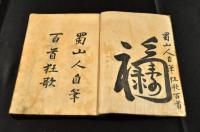 蜀山人自筆
百首狂歌
蜀山人自筆狂歌百首